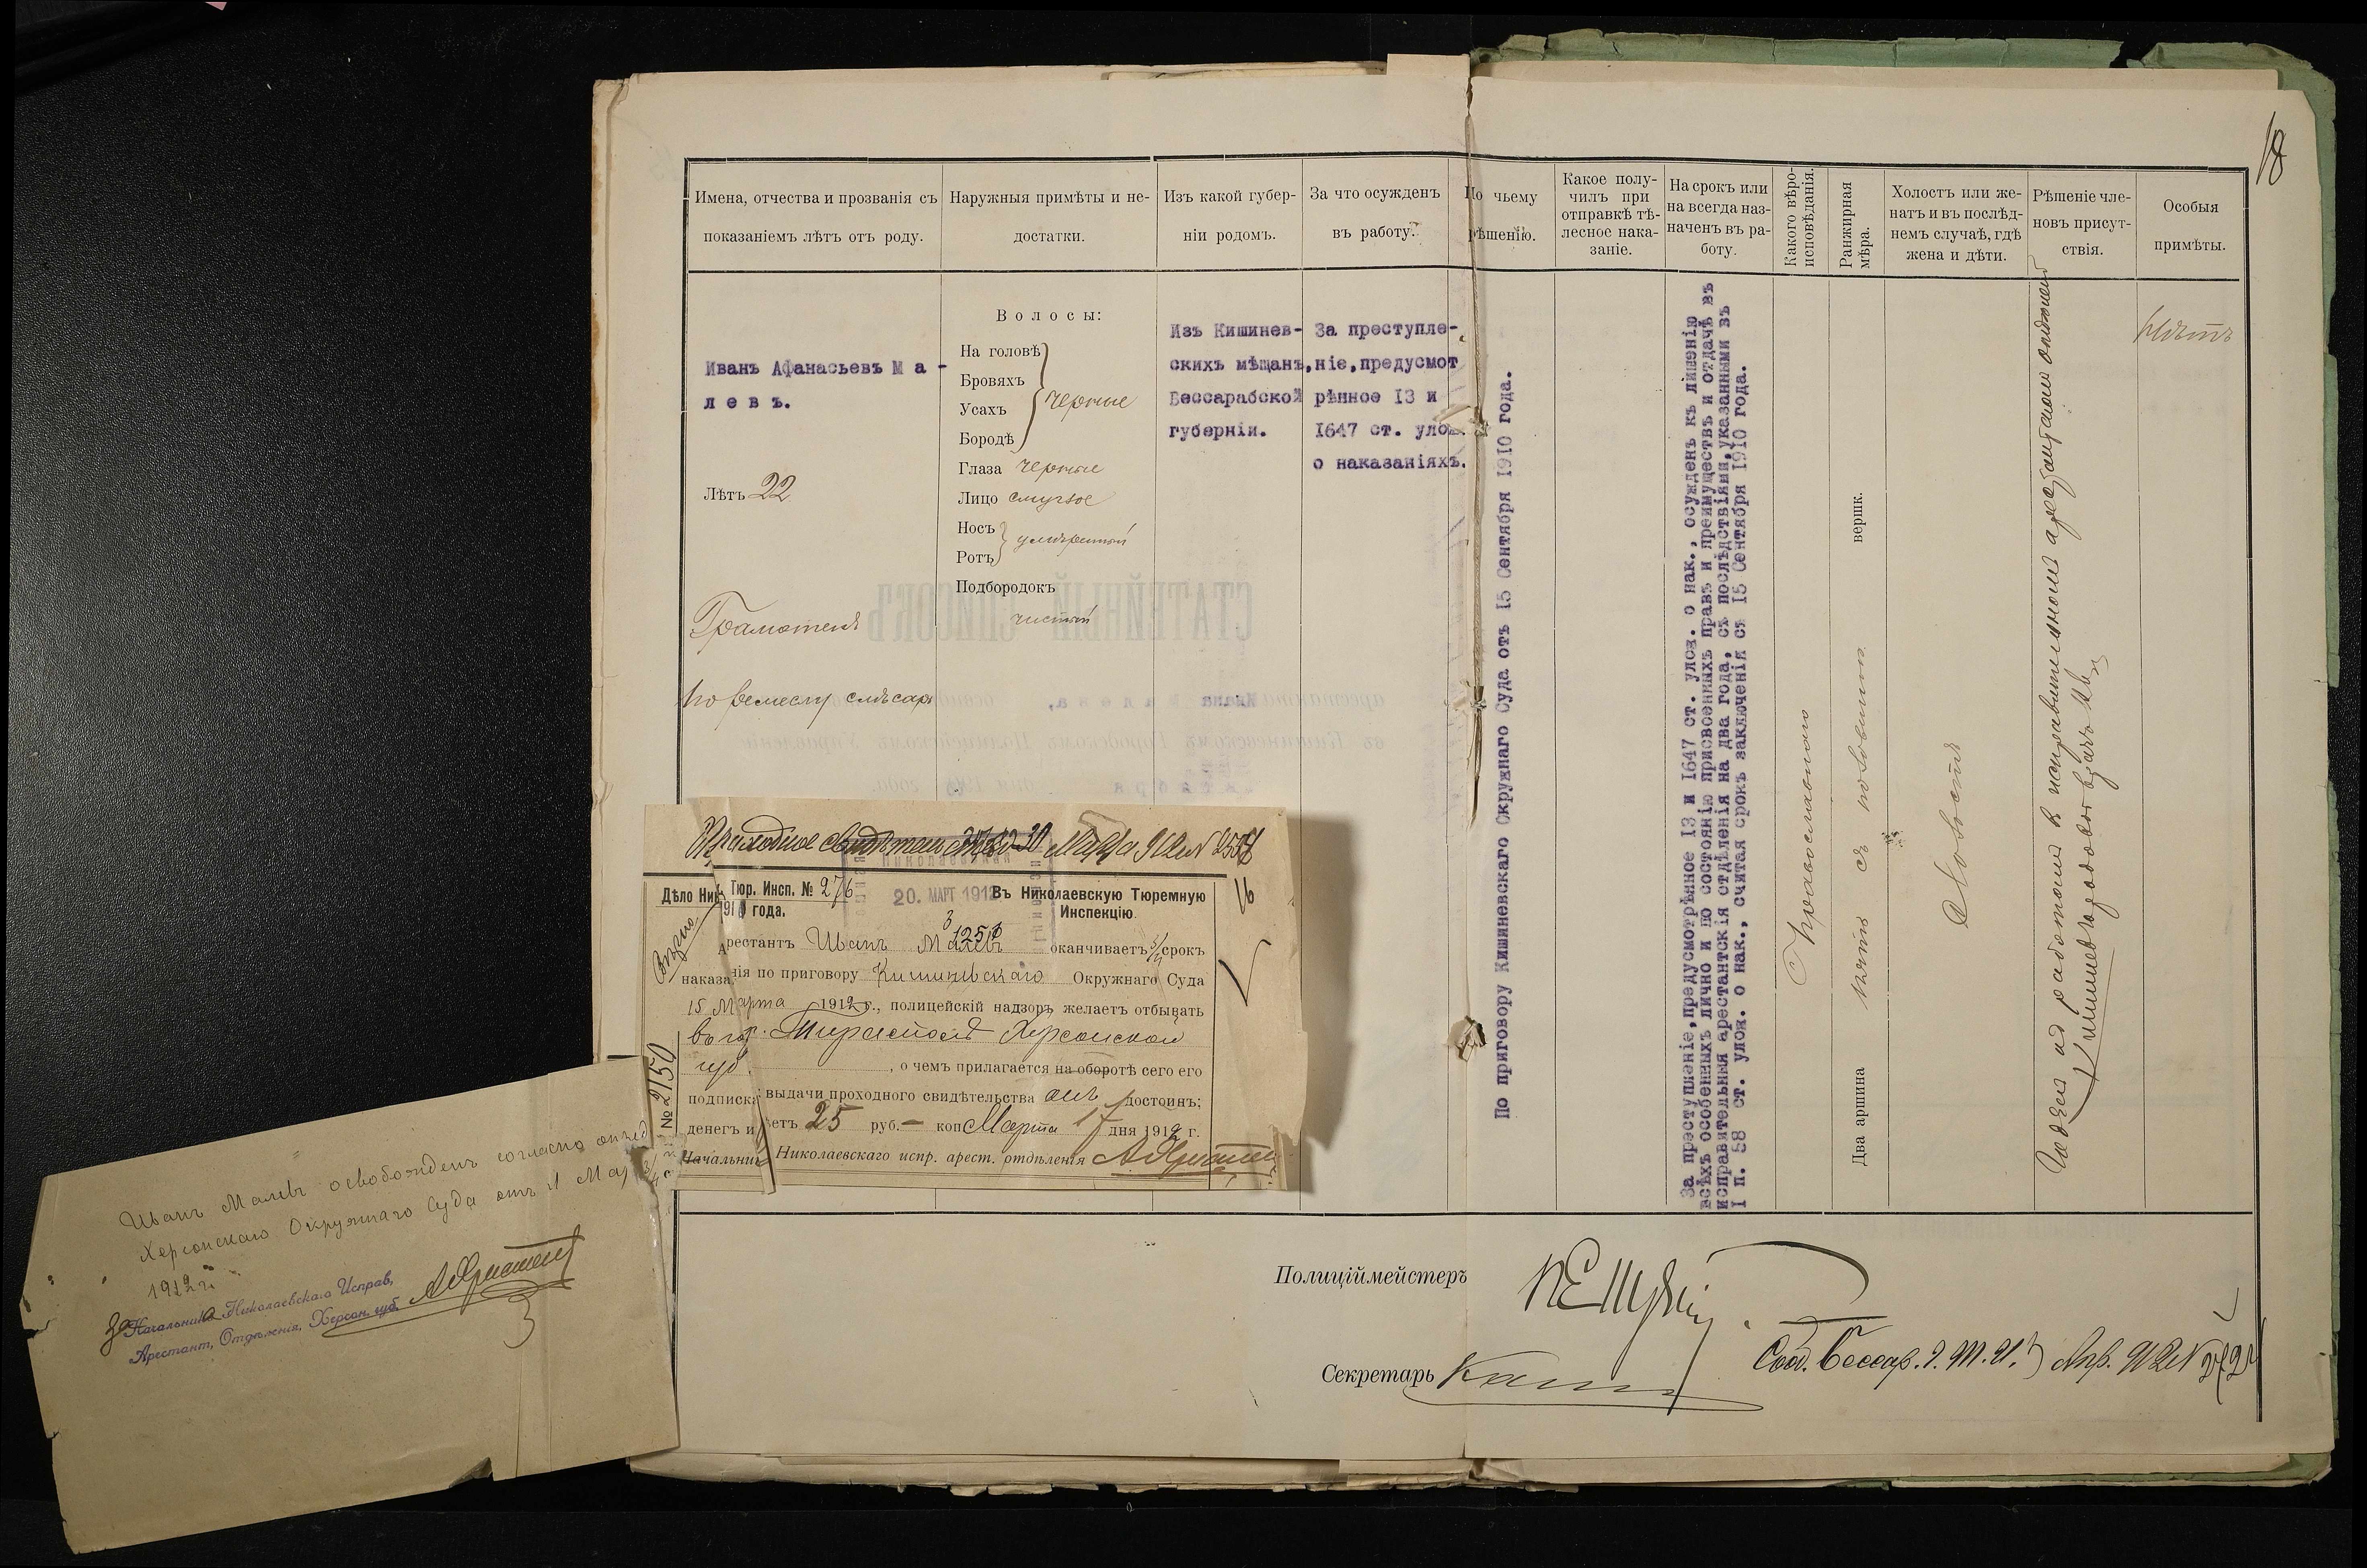 18
Имена, отчества и прозванія съ
показаніемъ лѣтъ отъ роду.
Наружныя примѣты и не-
достатки.
Изъ какой губер-
ніи родомъ.
За что осужденъ
въ работу.
По чьему
рѣшенію.
Какое полу-
чилъ при
отправкѣ тѣ-
лесное нака-
заніе.
На срокъ или
на всегда наз-
наченъ въ ра-
боту.
Какого вѣро-
исповѣданія.
Ранжирная
мѣра.
Холостъ или же-
натъ и въ послѣд-
немъ случаѣ, гдѣ
жена и дѣти.
Рѣшеніе чле-
новъ присут-
ствія.
Особыя
примѣты.
Иванъ Афанасьевъ М а -
л е в ъ.
Лѣтъ 22
Грамотенъ
по ремеслу слѣсарь
Волосы:
На головѣ
Бровяхъ
Усахъ
Бородѣ
черные
Глаза черные
Лицо смуглое
Носъ
Ротъ
умѣренный
Подбородокъ
чистый
Изъ Кишинев-
скихъ мѣщанъ,
Бессарабской
губерніи.
За преступле-
ніе,предусмот
рѣнное 13 и
1647 ст. улож.
о наказаніяхъ.
По приговору Кишиневскаго Окружнаго Суда отъ 15 Сентября 1910 года.
За преступленіе,предусмотрѣнное 13 и 1647 ст. улож. о нак., осужденъ къ лишенію
всѣхъ особенныхъ лично и по состоянію присвоенныхъ правъ и преимуществъ и отдачѣ въ
исправительныя арестантскія отдѣленія на два года, съ послѣдствіями,указанными въ
1 п. 58 ст. улож. о нак., считая срокъ заключенія съ 15 Сентября 1910 года.
Православнаго
Два аршина пять съ половиною вершк.
Холостъ
Годенъ къ работамъ въ исправительномъ арестантскомъ отдѣленіи
Кишинев. городовой врачъ
Нѣтъ
СТАТЕЙНЫЙ СПИСОКЪ
Проходное свидѣтельство 30 Марта 912 №
Дѣло Ник. Тюр. Инсп. № 276
191 года.
20. МАРТ 1912
Въ Николаевскую Тюремную
Инспекцію.
Арестантъ Иванъ Малевъ оканчиваетъ срокъ
наказанія по приговору Кишиневскаго Окружнаго Суда
15 Марта 1912 г., полицейскій надзоръ желаетъ отбывать
въ гор. Тирасполѣ Херсонской
губ. , о чемъ прилагается на оборотѣ сего его
подписка; выдачи проходного свидѣтельства онъ достоинъ;
денегъ имѣетъ 25 руб. — коп. Марта 17 дня 1912 г.
Начальникъ Николаевскаго испр. арест. отдѣленія
№ 2150
Иванъ Малевъ освобожденъ согласно опред
Херсонскаго Окружнаго Суда отъ 1 Мар
1912 г.
За Начальника Николаевскаго Исправ,
Арестант, Отдѣленія, Херсон. губ.
Полиціймейстеръ
Секретарь
Сооб. Бессар. Г. Т. И. 3 Апр. 912 №